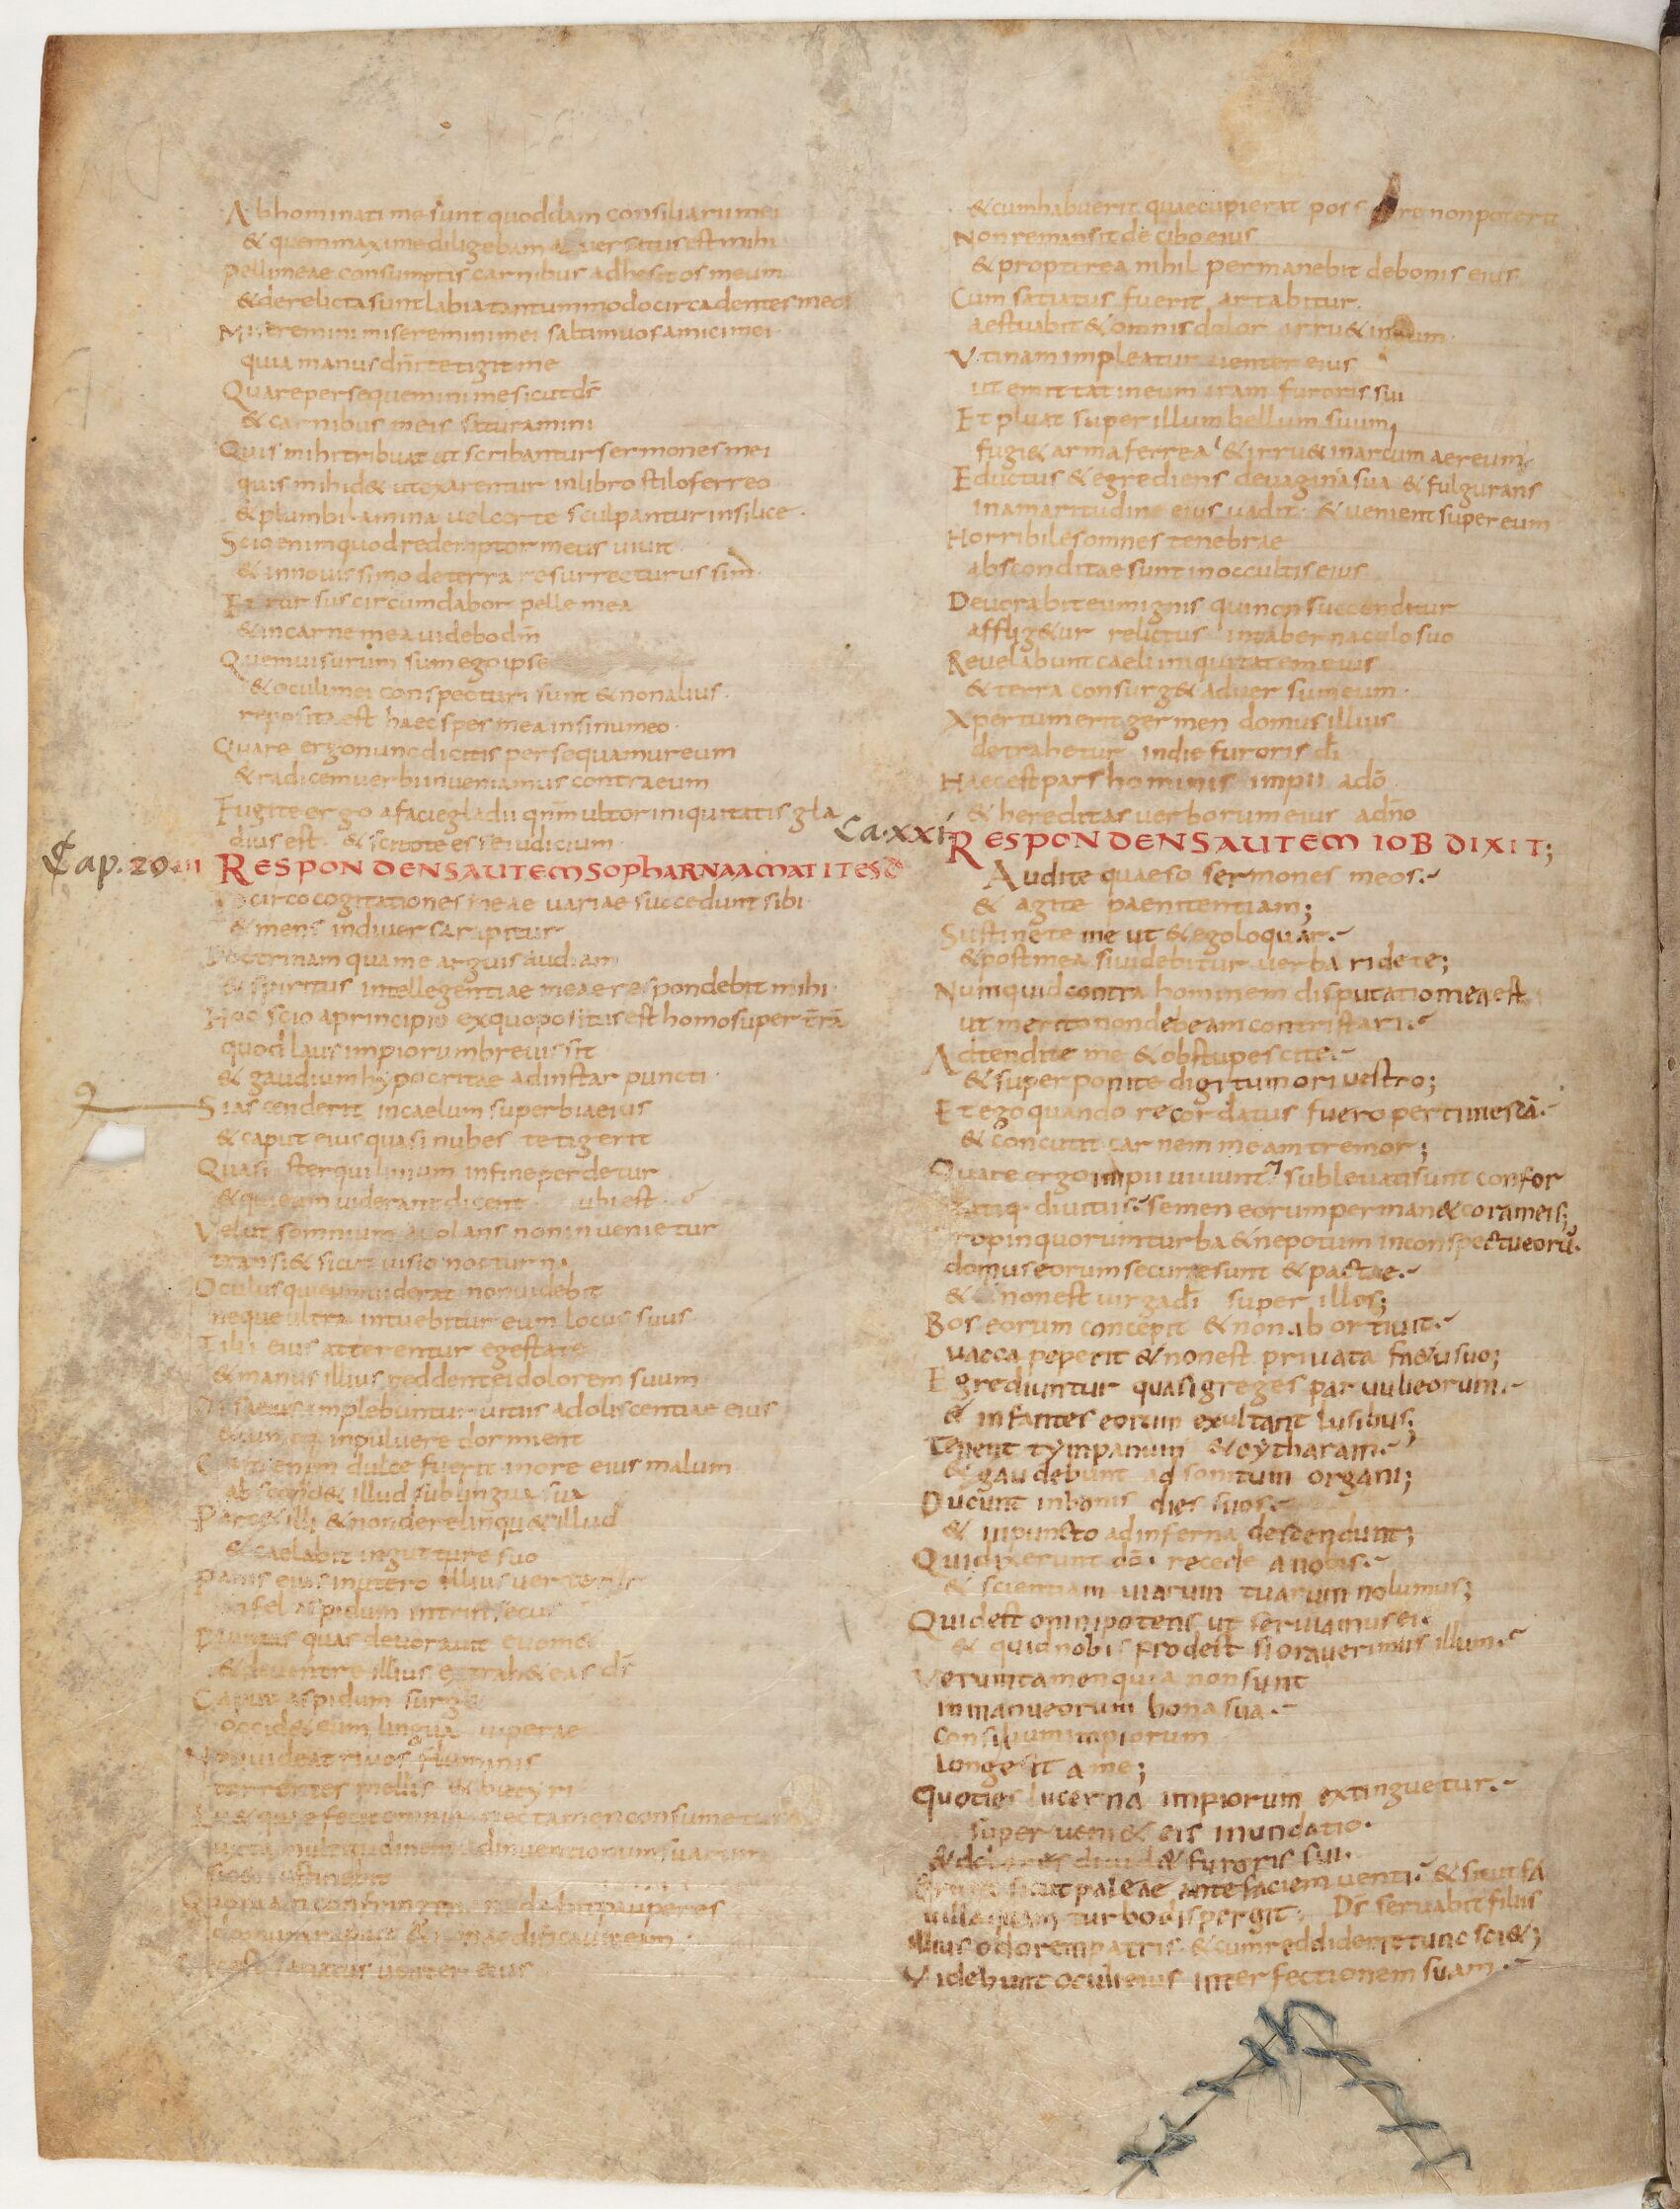 Abhominati me sunt quoddam consiliarii mei
& quem maxime diligebam auersatus est mihi
Pelli meae consumptis carnibus adhesit os meum
& derelicta sunt labia tantummodo circa dentes meos
Miseremini miseremini mei saltim uos amici mei
quia manus dn̄i tetigit me
Quare persequemini me sicut ds̄
& carnibus meis saturamini
Quis mihi tribuat ut scribantur sermones mei
quis mihi d& ut exarentur in libro stilo ferreo
& plumbi lamina uel certe sculpantur in silice.
Scio enim quod redemptor meus uiuit
& in nouissimo de terra resurrecturus sim.
Et rursus circumdabor pelle mea
& in carne mea uidebo dm̄
Quem uisurum sum ego ipse
& oculi mei conspecturi sunt & non alius.
reposita est haec spes mea in sinu meo.
Quare ergo nunc dicitis persequamur eum
& radicem uerbi inueniamus contra eum
Fugite ergo a facie gladii qnm̄ ultor iniquitatis gla
dius est. & scitote esse iudicium.
Cap. 20 RESPONDENS AUTEM SOPHAR NAAMATITES D
Idcirco cogitationes meae uariae succedunt sibi.
& mens in diuersa rapitur
Doctrinam qua me arguis audiam
& spiritus intellegentiae meae respondebit mihi.
Hoc scio a principio ex quo positus est homo super trā
quod laus impiorum breuis sit
& gaudium hypocritae ad instar puncti.
Si ascenderit in caelum superbia eius
& caput eius quasi nubes tetigerit
Quasi sterquilinium in fine perdetur
& qui eum uiderant dicent ubi est.
Velut somnium auolans non inuenietur
transi& sicut uisio nocturna
Oculus qui eum uiderat non uidebit
neque ultra intuebitur eum locus suus
Filii eius atterentur egestate
& manus illius reddent ei dolorem suum
Ossa eius implebuntur uitiis adoliscentiae eius
in puluere dormient
Cum enim dulce fuerit in ore eius malum
abscond& illud sub lingua sua
Parc& illi & non derelinqu& illud
& caelabit in gutture suo
Panis eius in utero illius
in fel aspidum intrinsecus
Diuitias quas deuorauit euomet
& de uentre illius extrah& eas ds̄
Caput aspidum surg&
occid& eum lingua uiperae
Non uideat riuos fluminis
torrentes mellis & butyri
Luet quae fecit omnia nec tamen consumetur
iuxta multitudinem adinuentionum suarum
sic & sustinebit
Quoniam confringens nudabit pauperes
domum rapuit & non aedificauit eam.
satiatus uenter eius
& cum habuerit quae cupierat poss non poterit
Non remansit de cibo eius
& propterea nihil permanebit de bonis eius
Cum satiatus fuerit artabitur.
aestuabit & omnis dolor irru& in eum.
Vtinam impleatur uenter eius
ut emittat in eum iram furoris sui
Et pluat super illum bellum suum
fugi& arma ferrea & irru& in arcum aereum
Eductus & egrediens de uagina sua & fulgurans
in amaritudine eius uadit. & uenient super eum
Horribiles omnes tenebrae
absconditae sunt in occultis eius
Deuorabit eum ignis qui non succenditur
afflig&ur relictus in tabernaculo suo
Reuelabunt caeli iniquitatem eius
& terra consurg& aduersum eum.
Apertum erit germen domus illius
detrahetur in die furoris di̅
Haec est pars hominis impii a do̅
& hereditas uerborum eius a dn̄o
Ca. xxi RESPONDENS AUTEM IOB DIXIT;
Audite quaeso sermones meos.
& agite paenitentiam;
Sustinete me ut & ego loquar.
& post mea si uidebitur uerba ridete;
Numquid contra hominem disputatio mea est
ut merito non debeam contristari.
Adtendite me & obstupescite.
& superponite digitum ori uestro;
Et ego quando recordatus fuero pertimescā.
& concutit carnem meam tremor;
Quare ergo impii uiuunt subleuati sunt confor
tatiq. diuitiis. semen eorum perman& coram eis;
ropinquorum turba & nepotum in conspectu eorū.
domus eorum securae sunt & pactae.
& non est uirga di̅ super illos;
Bos eorum concepit & non abortiuit.
uacca peperit & non est priuata fa&u suo;
Egrediuntur quasi greges paruuli eorum.
& infantes eorum exultant lusibus;
Tenent tympanum & cytharam.
& gaudebunt ad sonitum organi;
Ducunt in bonis dies suos.
& in puncto ad inferna descendunt;
Qui dixerunt do̅. recede a nobis.
& scientiam uiarum tuarum nolumus;
Quid est omnipotens ut seruiamus ei.
& quid nobis prodest si orauerimus illum.
Veruntamen quia non sunt
in manu eorum bona sua.
Consilium impiorum
longe sit a me;
Quotiens lucerna impiorum extinguetur.
superueni& eis inundatio.
& dolores diuid& furoris sui.
Erunt sicut paleae ante faciem uenti. & sicut fa
uilla quam turbo dispergit. Ds̄ seruabit filiis
illius dolorem patris & cum reddiderit tunc sci&;
Videbunt oculi eius interfectionem suam.